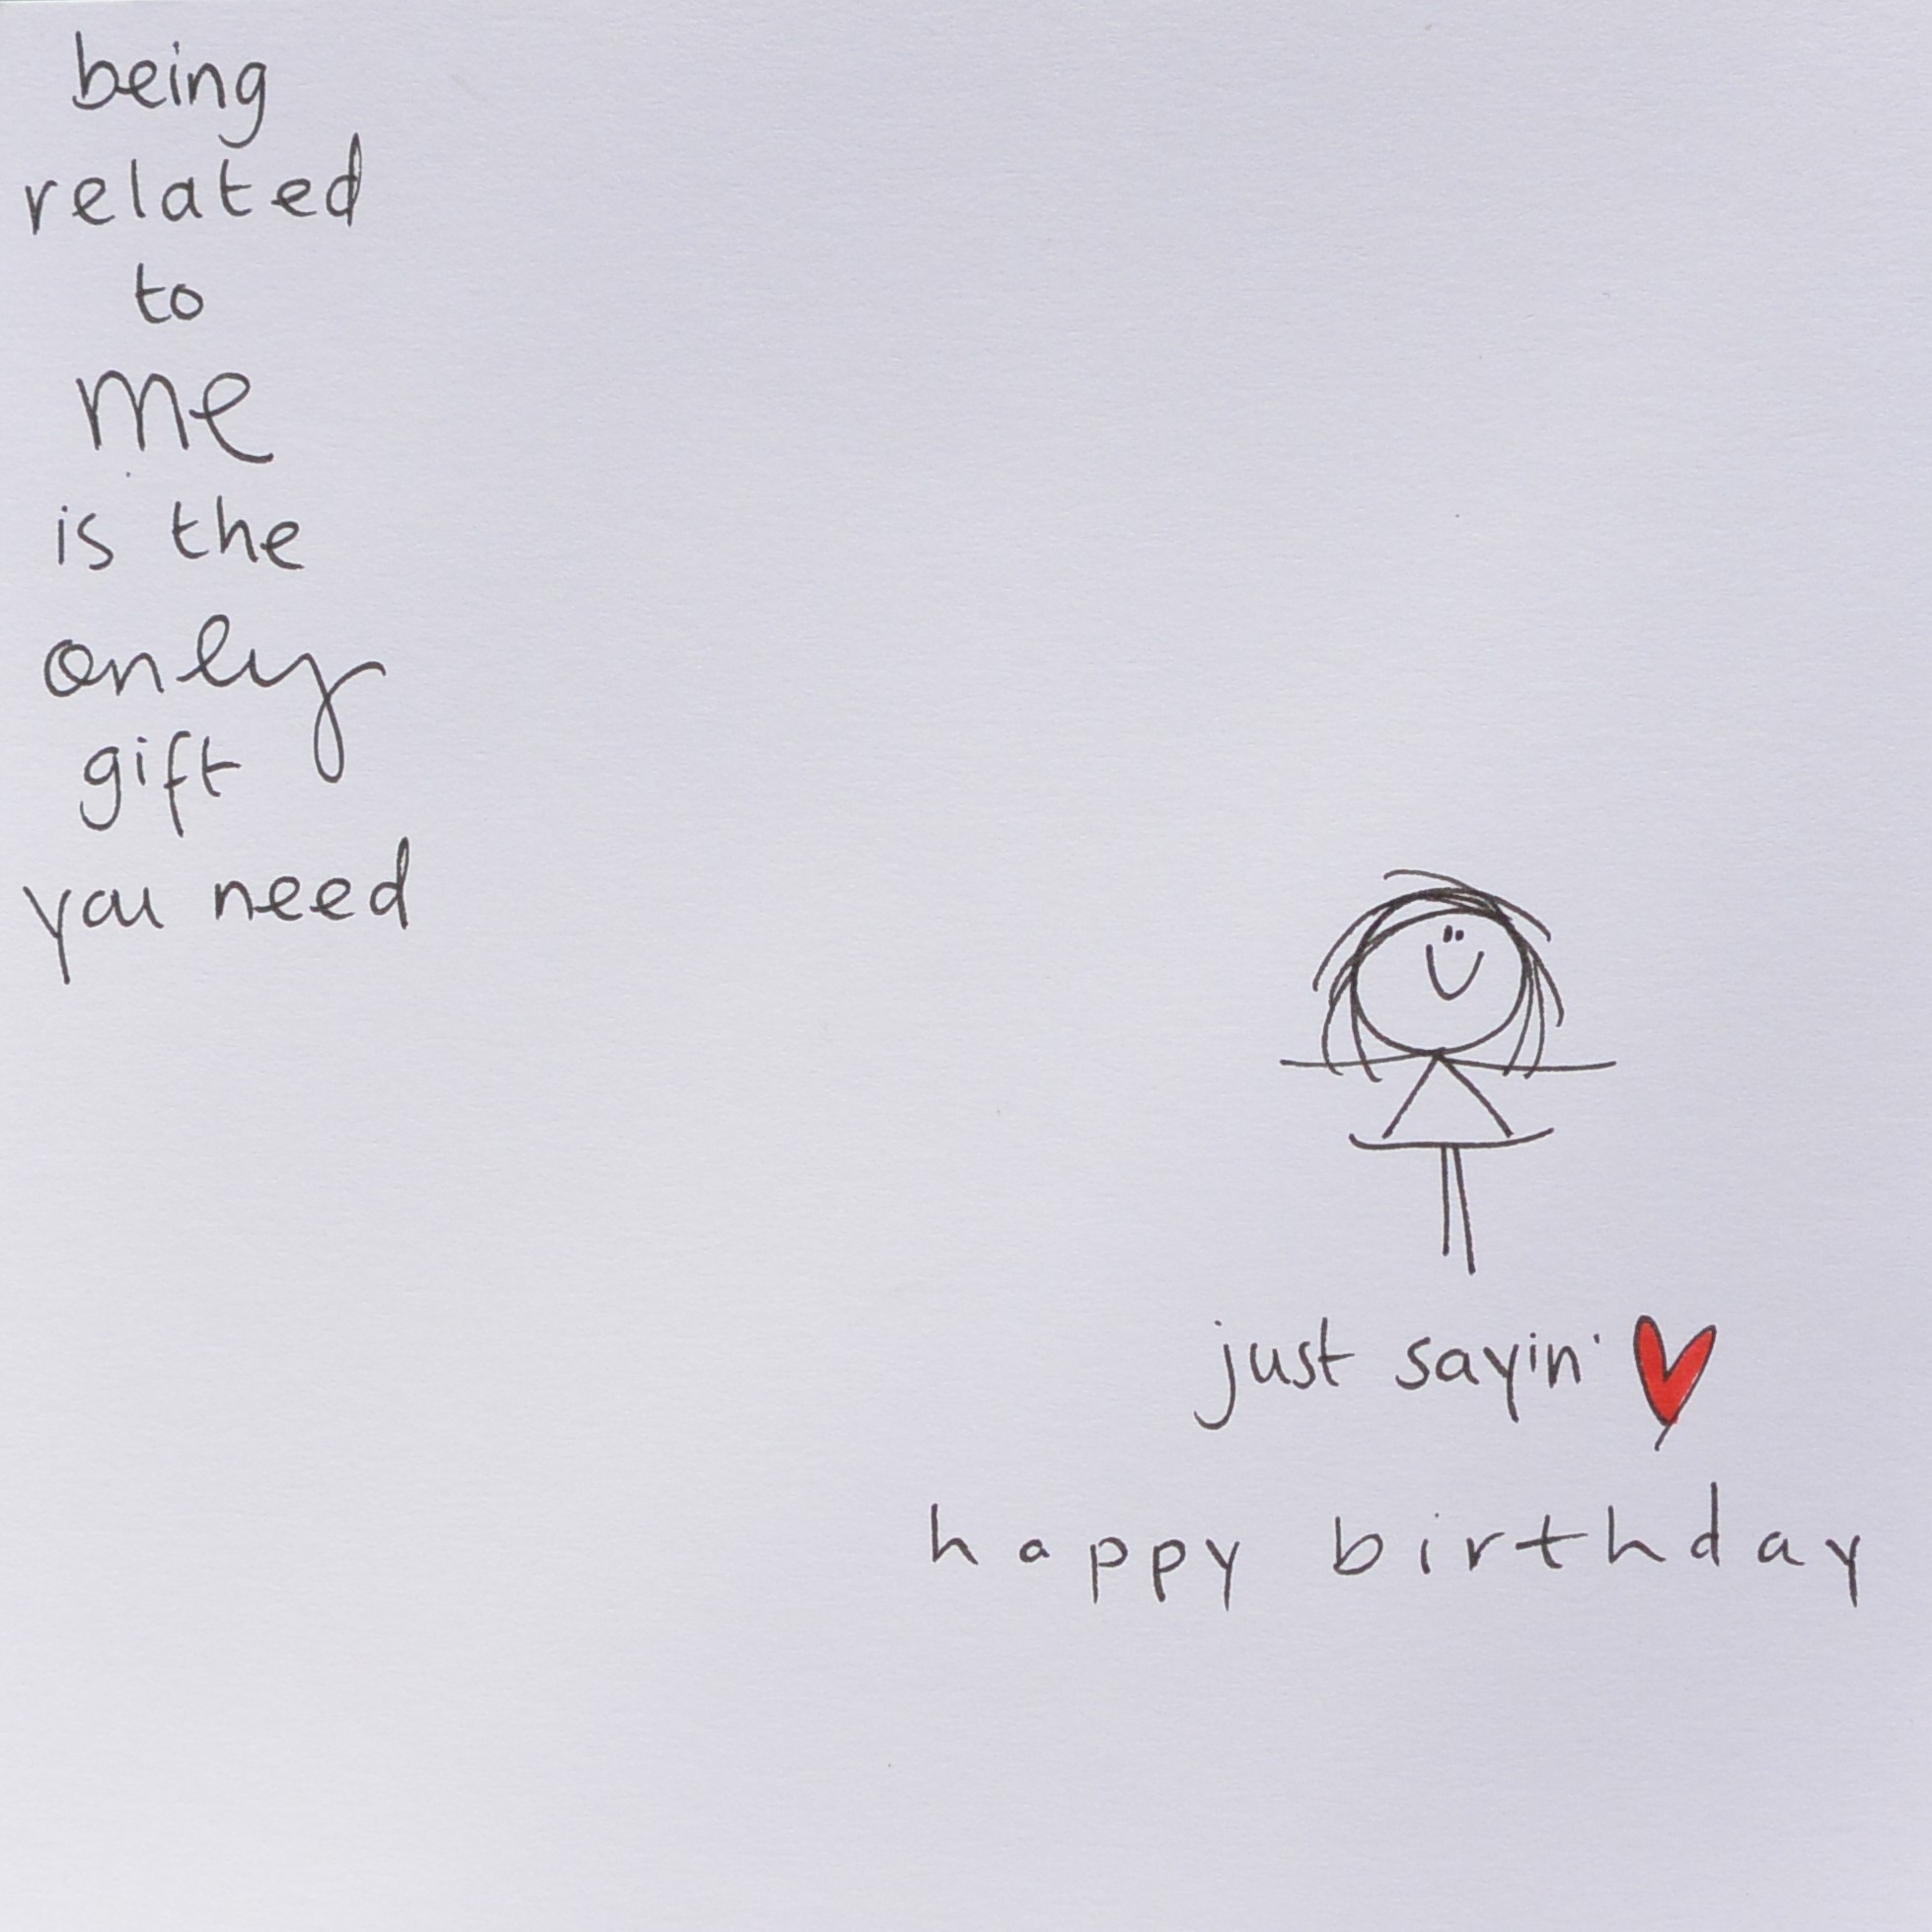 being
related
to
me
is the
only
gift
you need
just sayin'
happy birthday